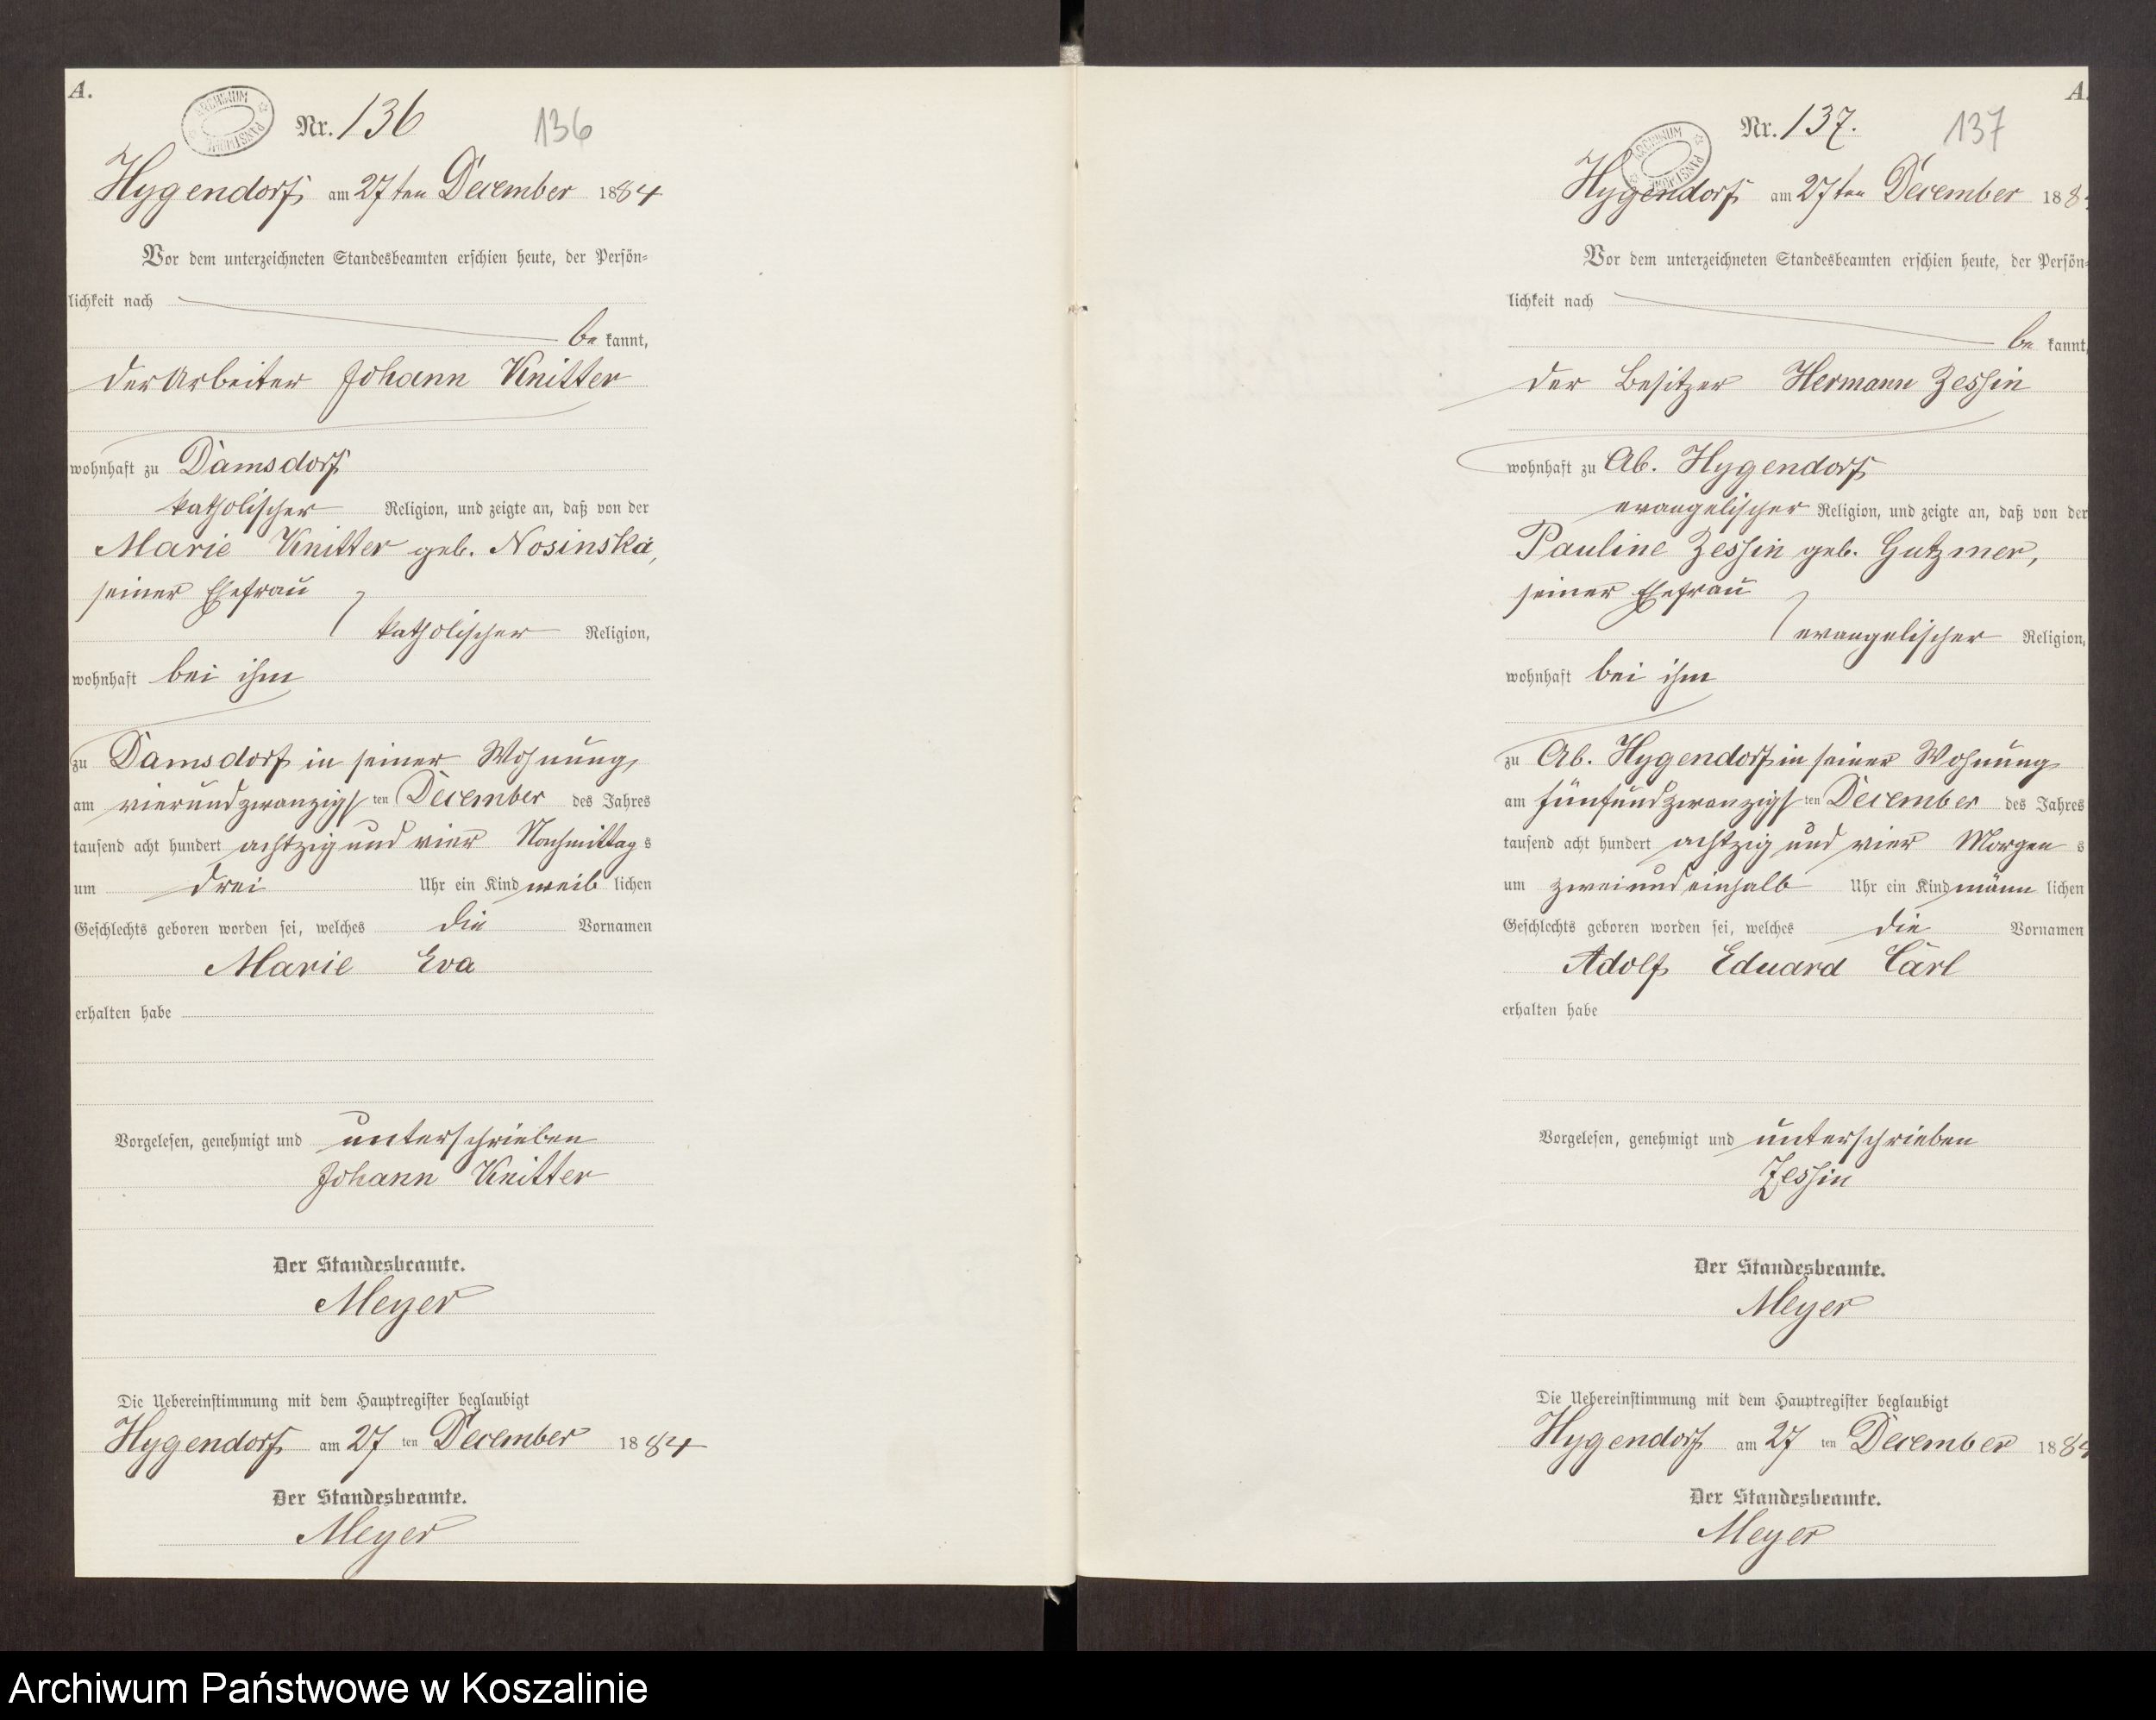 A.
ARCHIWUM PAŃSTWOWE
Nr. 136
136
Hygendorf am 27ten December 1884
Vor dem unterzeichneten Standesbeamten erschien heute, der Persön-
lichkeit nach
be kannt,
der Arbeiter Johann Knitter
wohnhaft zu Damsdorf
katholischer Religion, und zeigte an, daß von der
Marie Knitter geb. Nosinska,
seiner Ehefrau
katholischer Religion,
wohnhaft bei ihm
zu Damsdorf in seiner Wohnung,
am vierundzwanzigsten December des Jahres
tausend acht hundert achtzig und vier Nachmittags
um drei Uhr ein Kind weiblichen
Geschlechts geboren worden sei, welches die Vornamen
Marie Eva
erhalten habe
Vorgelesen, genehmigt und unterschrieben
Johann Knitter
Der Standesbeamte.
Meyer
Die Uebereinstimmung mit dem Hauptregister beglaubigt
Hygendorf am 27 ten December 1884
Der Standesbeamte.
Meyer
A.
ARCHIWUM PAŃSTWOWE
Nr. 137.
137
Hygendorf am 27ten December 188
Vor dem unterzeichneten Standesbeamten erschien heute, der Persön-
lichkeit nach
be kannt,
der Besitzer Hermann Zessin
wohnhaft zu Ab. Hygendorf
evangelischer Religion, und zeigte an, daß von der
Pauline Zessin geb. Gutzmer,
seiner Ehefrau
evangelischer Religion,
wohnhaft bei ihm
zu Ab. Hygendorf in seiner Wohnung
am fünfundzwanzigsten December des Jahres
tausend acht hundert achtzig und vier Morgens
um zweiundeinhalb Uhr ein Kind männlichen
Geschlechts geboren worden sei, welches die Vornamen
Adolf Eduard Carl
erhalten habe
Vorgelesen, genehmigt und unterschrieben
Zessin
Der Standesbeamte.
Meyer
Die Uebereinstimmung mit dem Hauptregister beglaubigt
Hygendorf am 27 ten December 1884
Der Standesbeamte.
Meyer
Archiwum Państwowe w Koszalinie